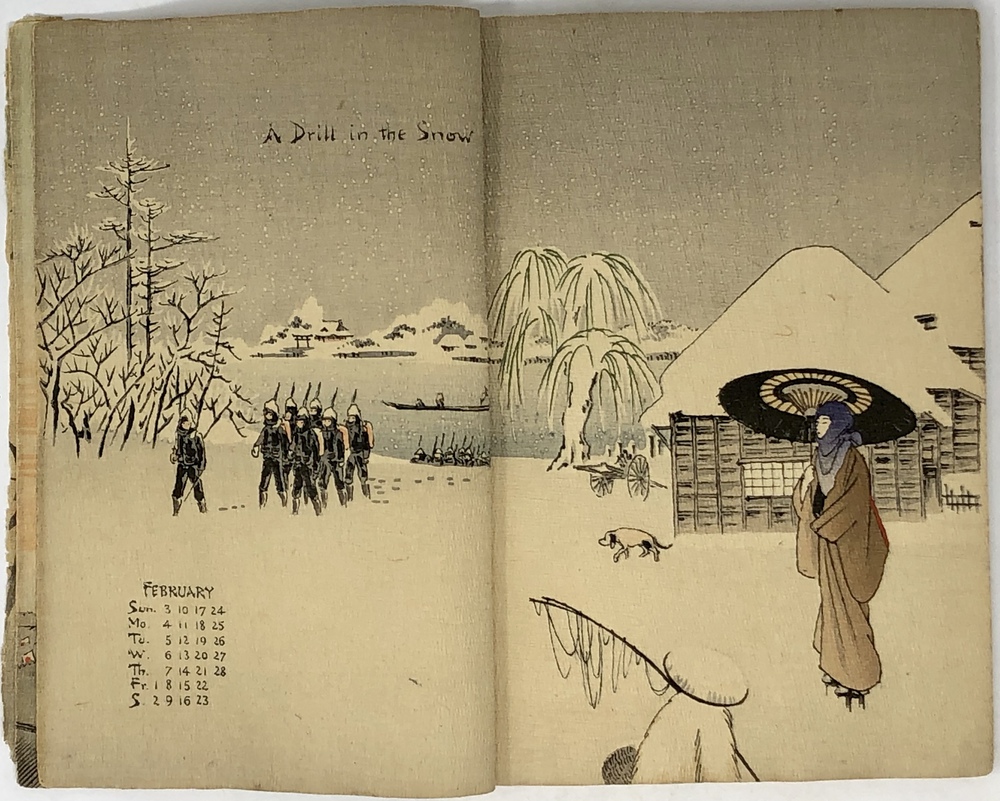 A Drill in the Snow
FEBRUARY
Sun. 3 10 17 24
Mo. 4 11 18 25
Tu. 5 12 19 26
W. 6 13 20 27
Th. 7 14 21 28
Fr. 1 8 15 22
S. 2 9 16 23